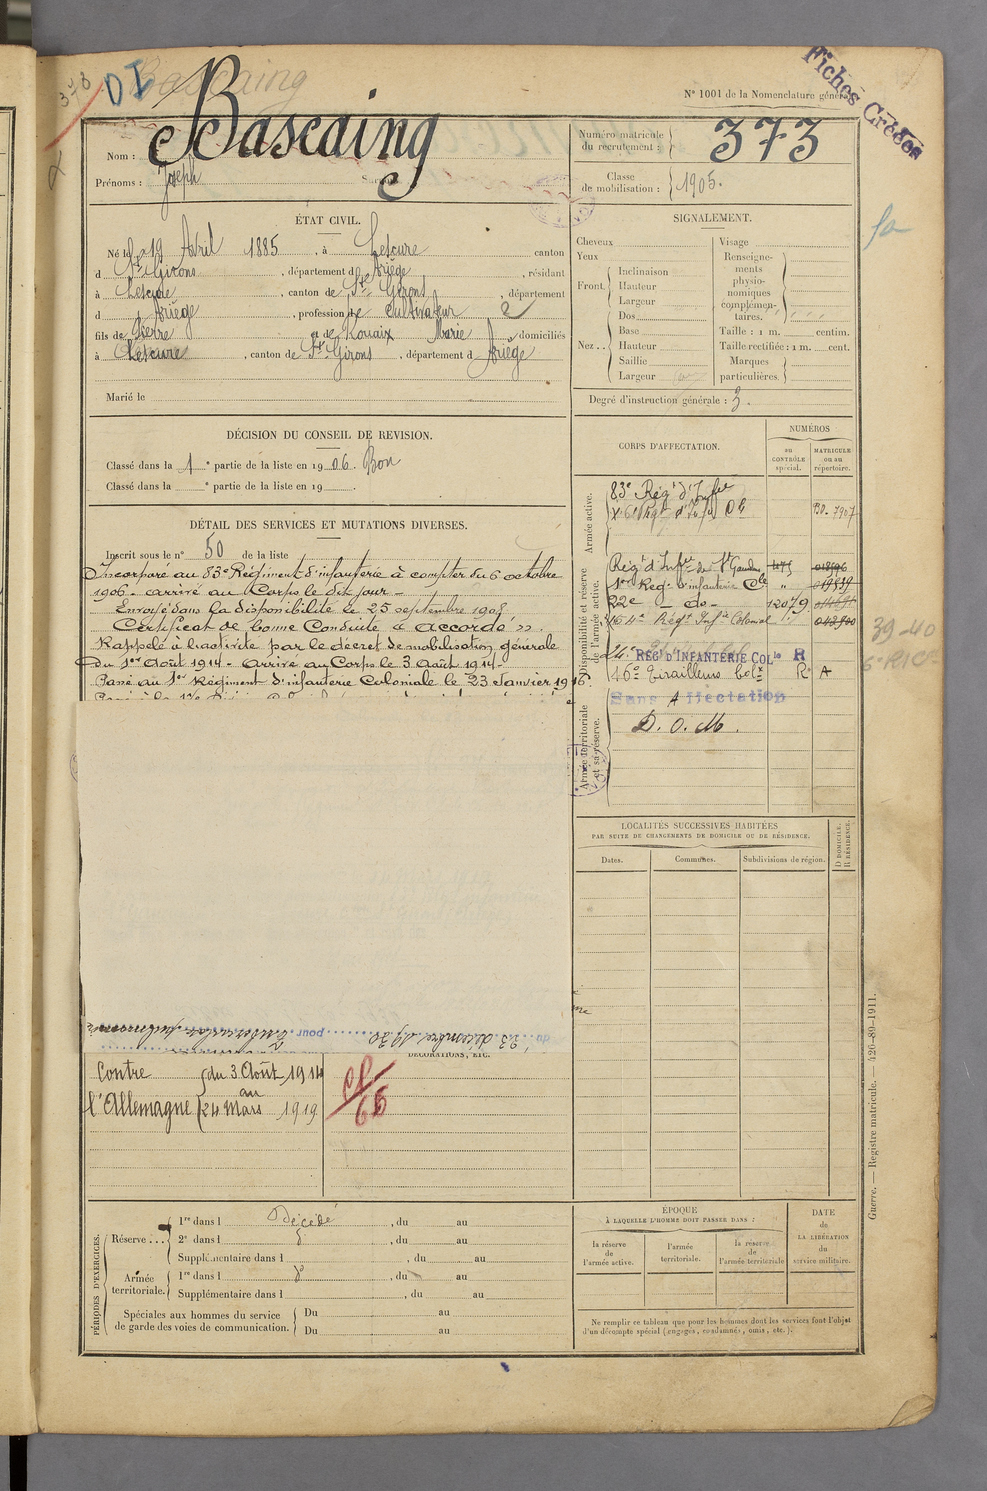 373
DI
Bascaing
N° 1001 de la Nomenclature générale
Fiches Créées
Nom : Bascaing
Prénoms : Joseph
Numéro matricule du recrutement : 373
Classe de mobilisation : 1905.
ÉTAT CIVIL.
Né le 19 Avril 1885, à Lescure canton
d St Girons, département d Ariège, résidant
à Lescure, canton de St Girons, département
d Ariège, profession de Cultivateur
fils de Pierre et de Rouaix Marie domiciliés
à Lescure, canton de St Girons, département d Ariège
Marié le
SIGNALEMENT.
Cheveux
Yeux
Front.
Inclinaison
Hauteur
Largeur
Nez..
Dos
Base
Hauteur
Saillie
Largeur
Visage
Renseigne-
ments
physio-
nomiques
complémen-
taires.
Taille : 1 m. centim.
Taille rectifiée : 1 m. cent.
Marques
particulières.
Degré d'instruction générale : 3.
DÉCISION DU CONSEIL DE REVISION.
Classé dans la 1 e partie de la liste en 1906. Bon
Classé dans la e partie de la liste en 19 .
DÉTAIL DES SERVICES ET MUTATIONS DIVERSES.
Inscrit sous le n° 50 de la liste
Incorporé au 83e Régiment d'infanterie à compter du 6 octobre
1906 - arrivé au Corps le dit jour -
Envoyé dans la disponibilité le 25 septembre 1908
Certificat de bonne Conduite « accordé ».
Rappelé à l'activité par le décret de mobilisation générale
du 1er Août 1914 - arrivé au Corps le 3 Août 1914 -
Passé au 1er Régiment d'infanterie Coloniale le 23 Janvier 1916.
CORPS D'AFFECTATION.
NUMÉROS
au CONTRÔLE spécial.
MATRICULE ou au répertoire.
Armée active.
83e Régt d'Infrie
7907
Disponibilité et réserve de l'armée active.
Régt d'Infrie de St Gaudens
1er Régt d'infanterie Cle "
22e - do - 12079
Régt Infie Colonial
24e RÉGt D'INFANTERIE COLle R
16e Tirailleurs Colx R A
Sans Affectation
D. O. M.
Armée territoriale et sa réserve.
39-40
6e RIC
LOCALITÉS SUCCESSIVES HABITÉES
PAR SUITE DE CHANGEMENTS DE DOMICILE OU DE RÉSIDENCE.
Dates.
Communes.
Subdivisions de région.
D DOMICILE.
R RÉSIDENCE.
du 23 décembre 1930 pour Tuberculose pulmonaire
DÉCORATIONS, ETC.
Contre
l'Allemagne
du 3 Août 1914
au
24 Mars 1919
PÉRIODES D'EXERCICES.
Réserve...
1re dans l Décédé, du au
2e dans l do, du au
Supplémentaire dans l , du au
Armée territoriale.
1re dans l do, du au
Supplémentaire dans l , du au
Spéciales aux hommes du service
de garde des voies de communication.
Du au
Du au
ÉPOQUE
À LAQUELLE L'HOMME DOIT PASSER DANS :
la réserve de l'armée active.
l'armée territoriale.
la réserve de l'armée territoriale
DATE de LA LIBÉRATION du service militaire.
Ne remplir ce tableau que pour les hommes dont les services font l'objet
d'un décompte spécial (engagés, condamnés, omis, etc.).
Guerre. — Registre matricule. — 426-89-1911.